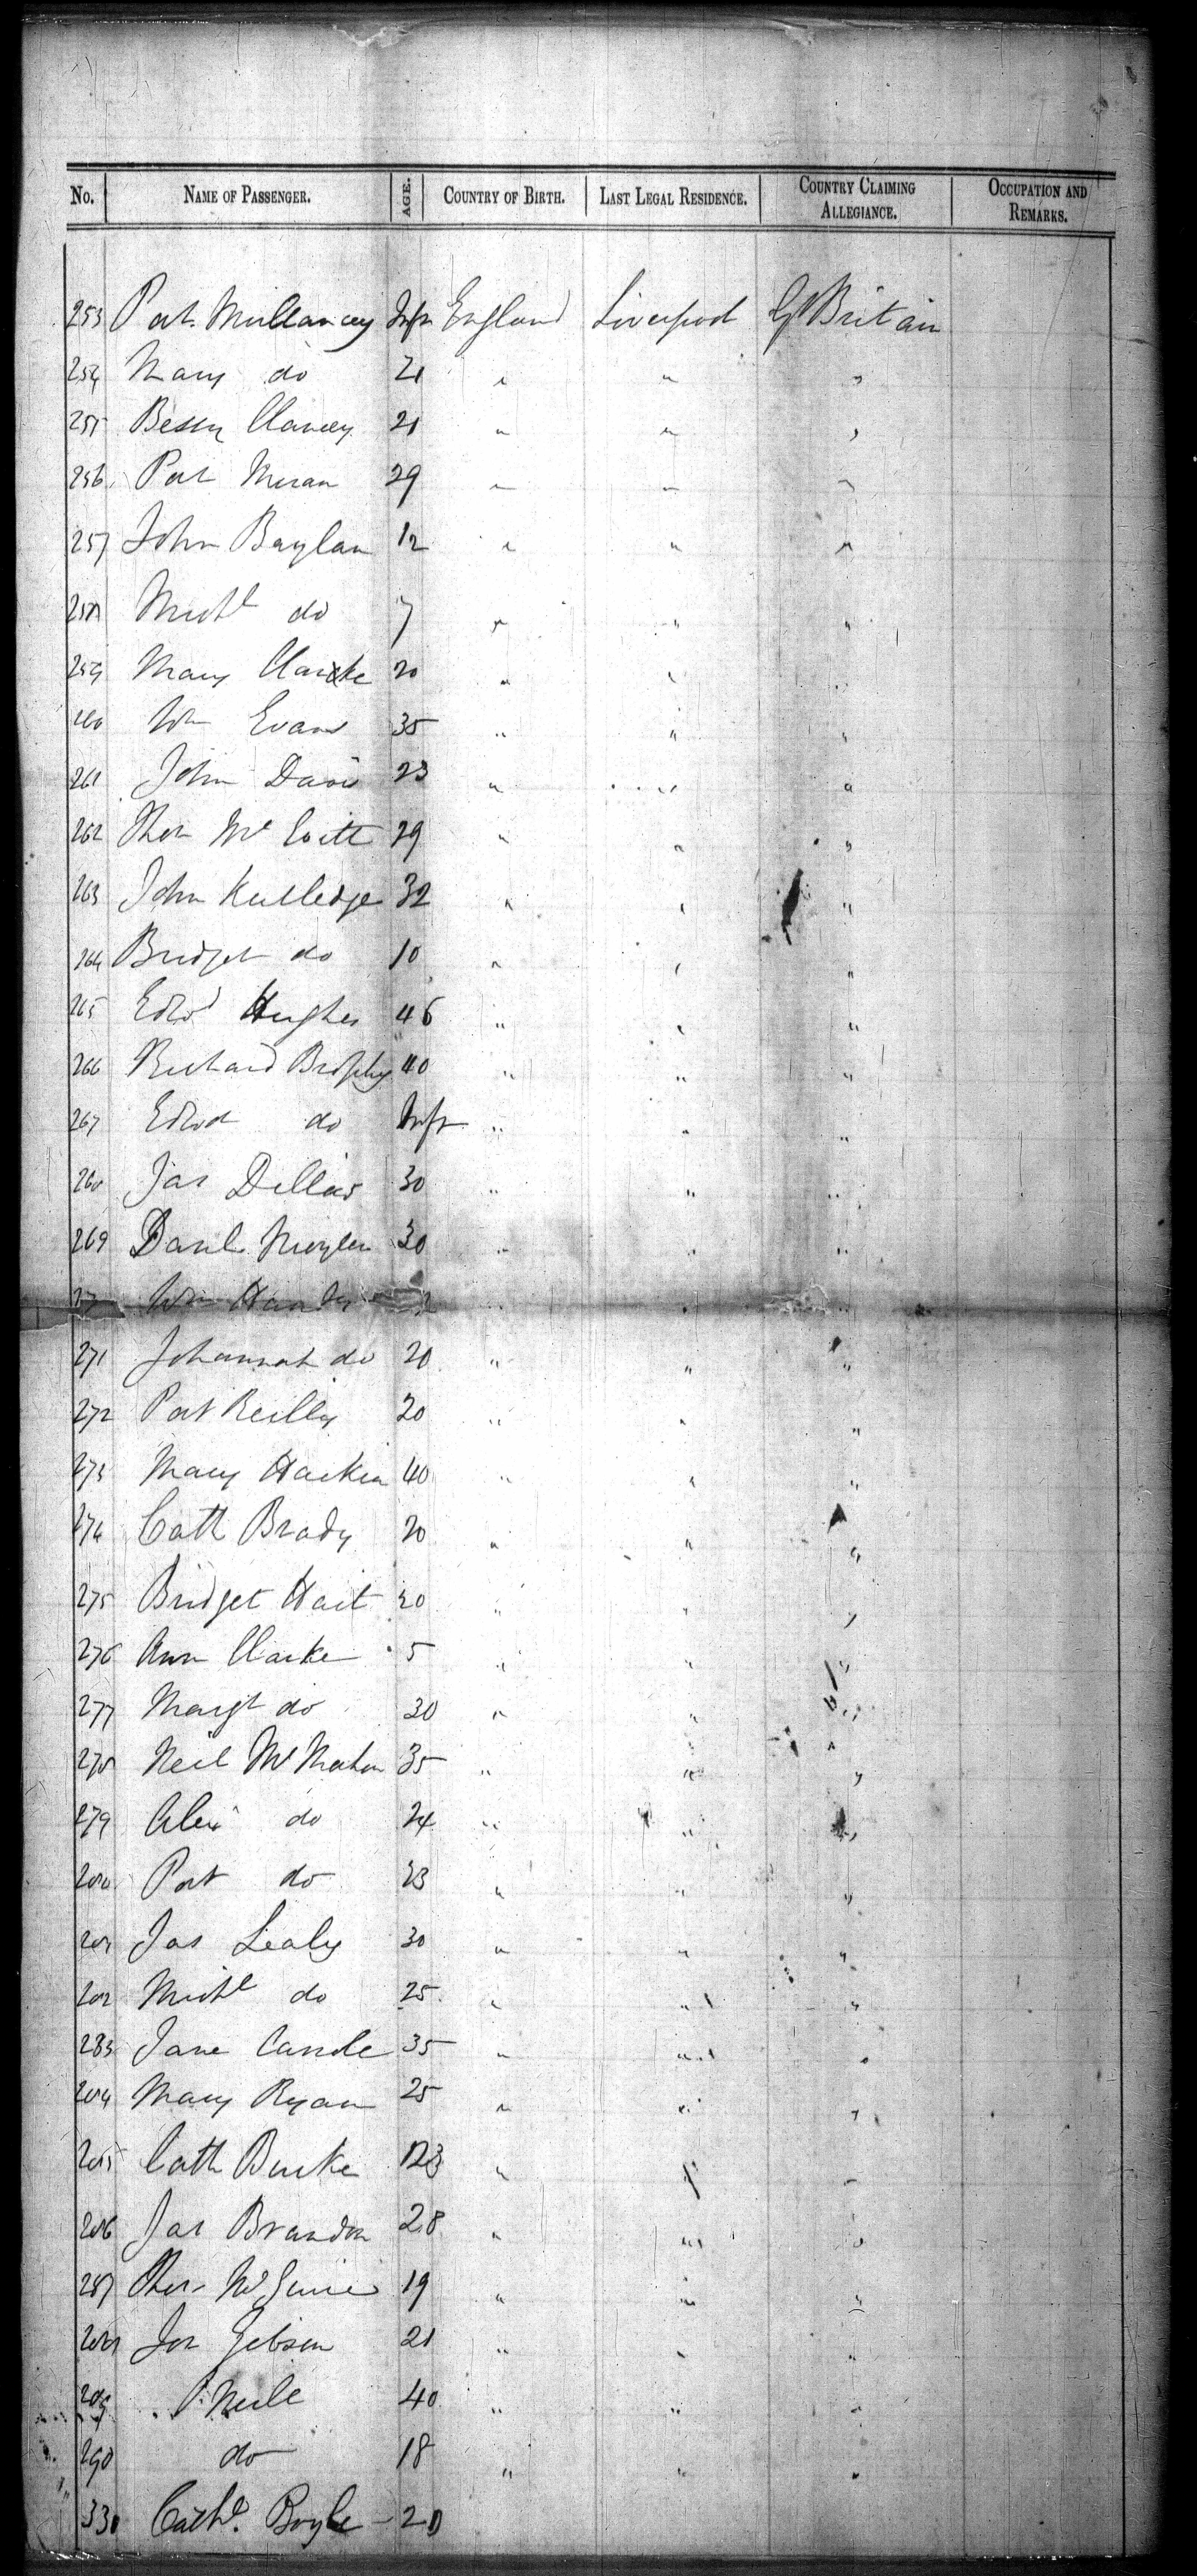 No. NAME OF PASSENGER. AGE. COUNTRY OF BIRTH. LAST LEGAL RESIDENCE. COUNTRY CLAIMING ALLEGIANCE. OCCUPATION AND REMARKS.
253 Pat. Mullaney Inft England Liverpool Gt Britain
254 Mary do 21 " " "
255 Bessy Clancy 21 " " "
256 Pat Moran 29 " " "
257 John Baylan 12 " " "
258 Michl do 7 " " "
259 Mary Clarke 20 " " "
260 Wm Evans 35 " " "
261 John Davis 23 " " "
262 Thos Mc 29 " " "
263 John Rutledge 32 " " "
264 Bridget do 10 " " "
265 Edwd Hughes 46 " " "
266 Richard Brophy 40 " " "
267 Edwd do Inft " " "
268 Jas Dillon 30 " " "
269 Danl 30 " " "
Wm " " "
271 Johannah do 20 " " "
272 Pat Reilly 20 " " "
273 Mary Harkin 40 " " "
274 Cath Brady 20 " " "
275 Bridget Hart 20 " " "
276 Ann Clarke 5 " " "
277 Margt do 30 " " "
278 Neil McMahon 35 " " "
279 Alex do 24 " " "
280 Pat do 23 " " "
281 Jas Lealy 30 " " "
282 Michl do 25 " " "
283 Jane 35 " " "
284 Mary Ryan 25 " " "
285 Cath Burke " " "
286 Jas Brandon 28 " " "
287 Thos 19 " " "
288 Gibson 21 " " "
289 40 " " "
290 do 18 " " "
330 Cathe. Boyle 20